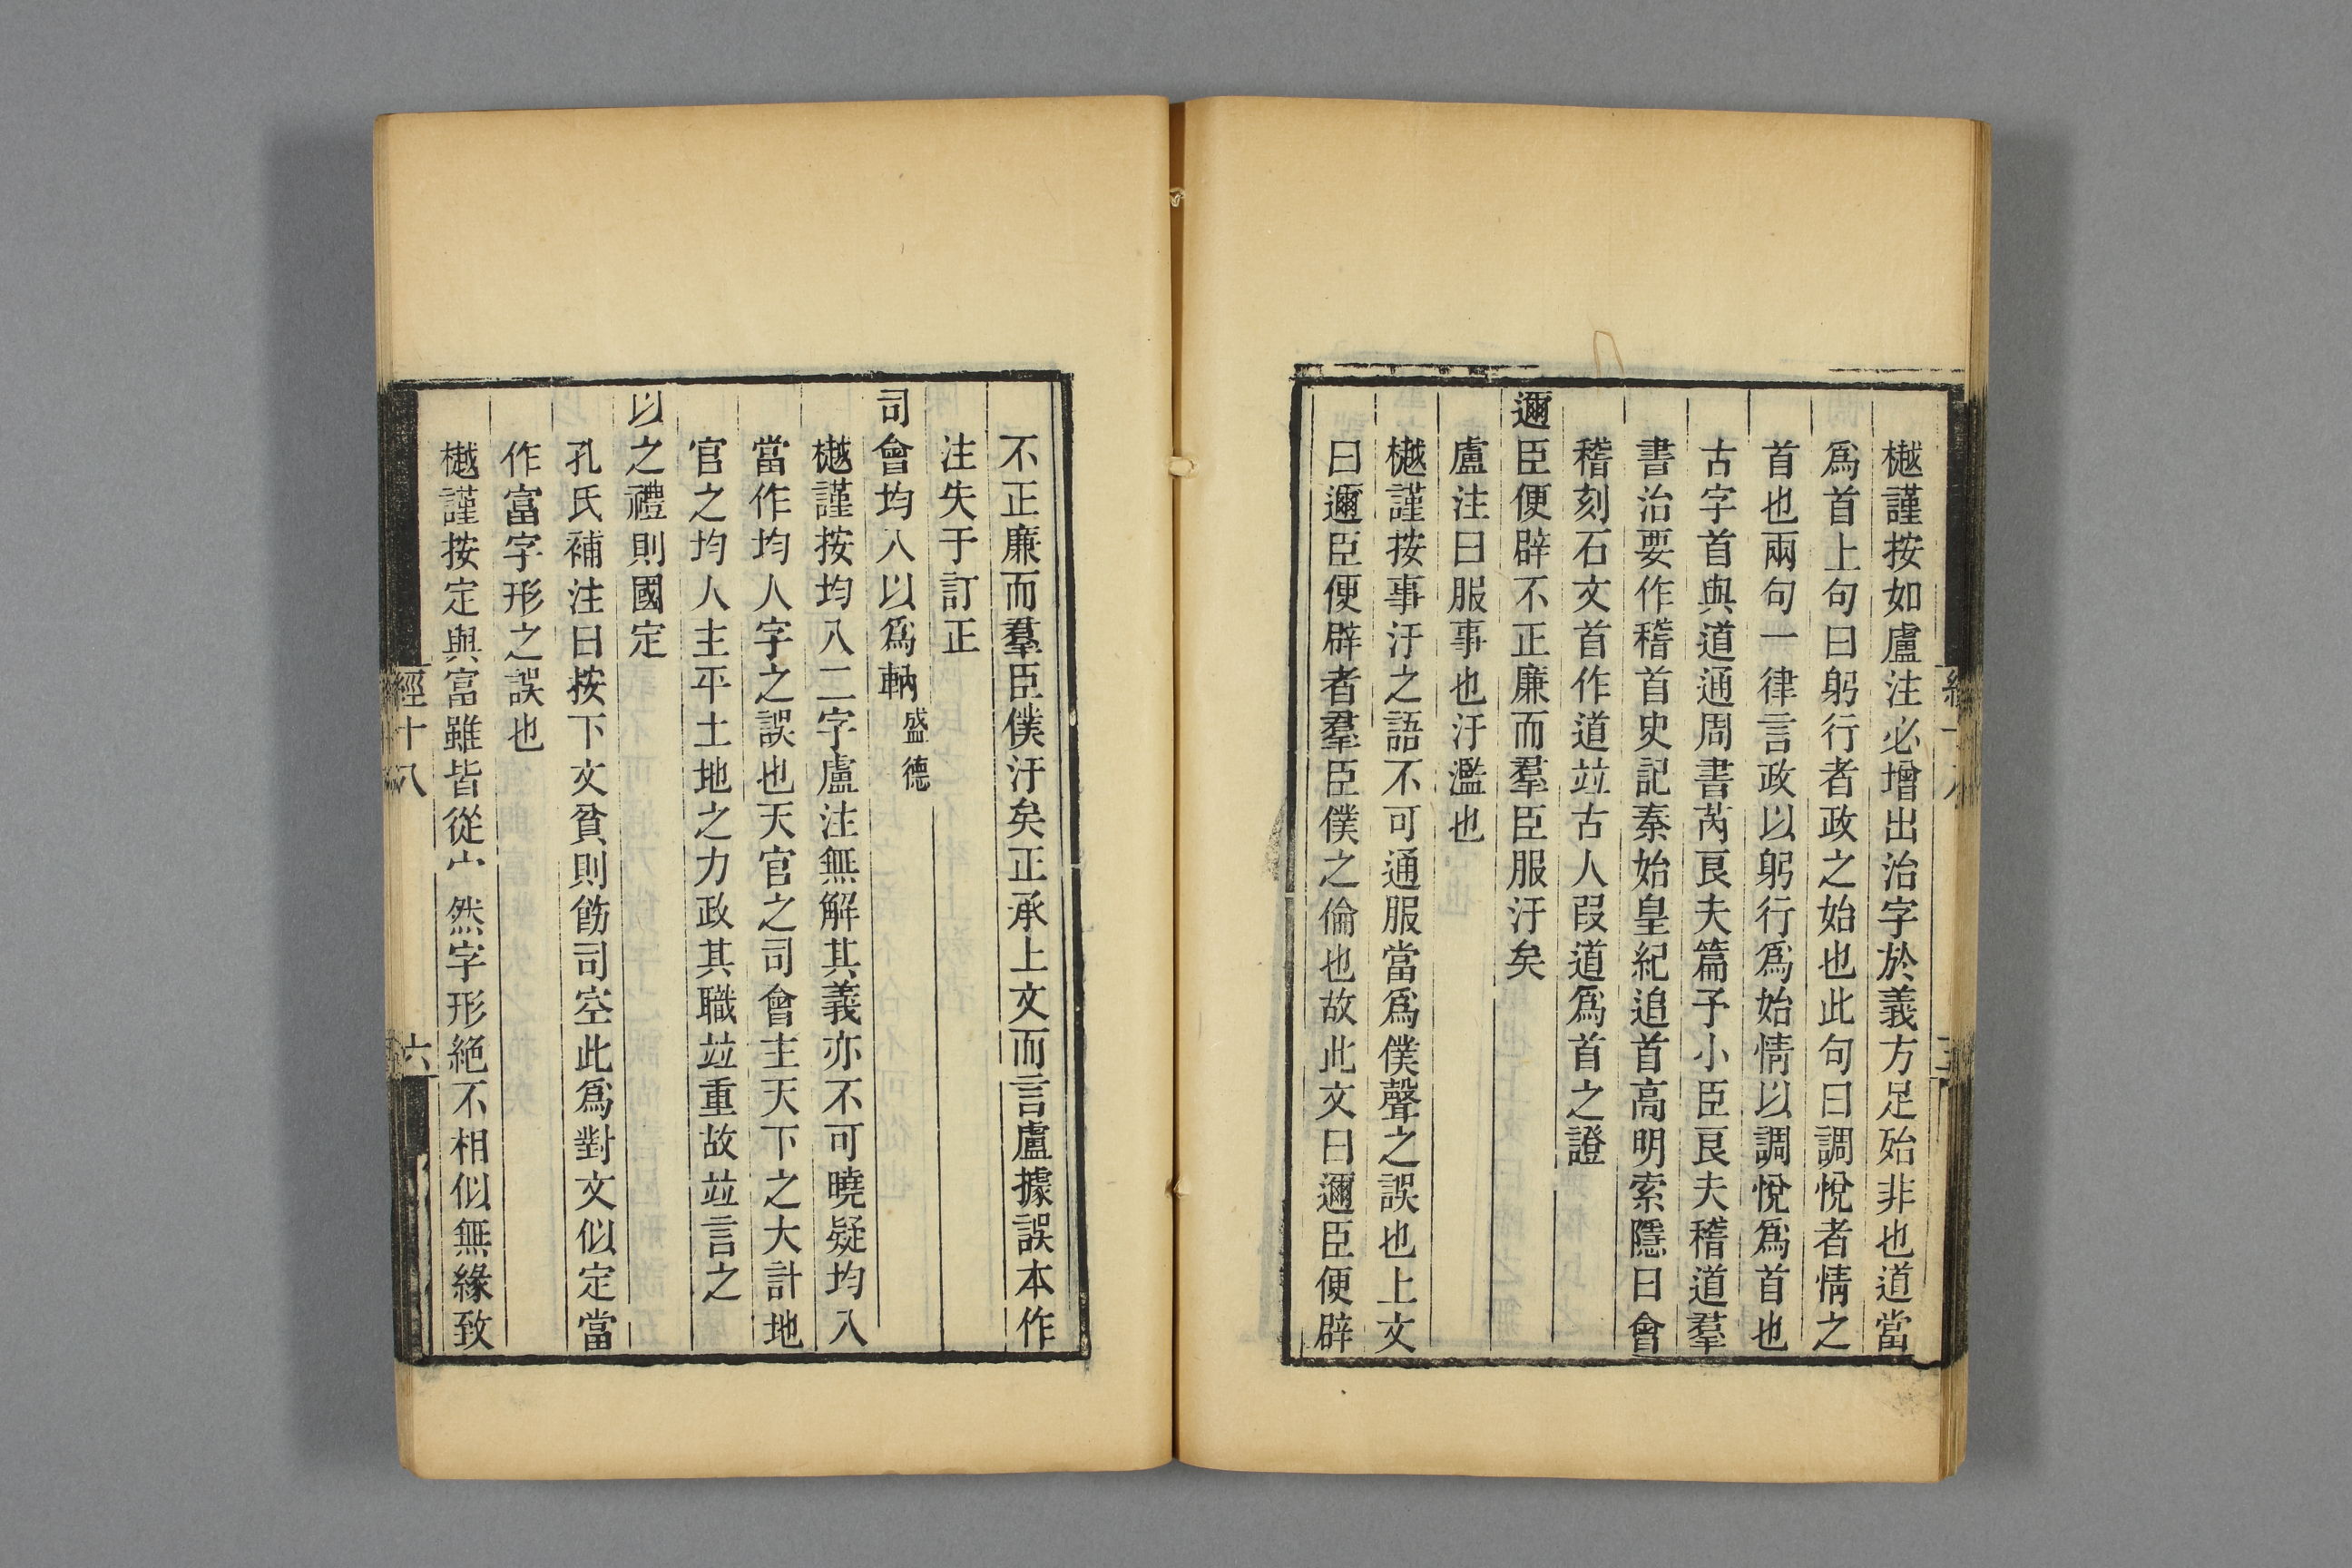 樾謹按如盧注必增出治字於義方足殆非也道當
爲首上句曰躬行者政之始也此句曰調悅者情之
首也兩句一律言政以躬行爲始情以調悅爲首也
古字首與道通周書芮良夫篇予小臣良夫稽道羣
書治要作稽首史記秦始皇紀追首高明索隱曰會
稽刻石文首作道竝古人叚道爲首之證
邇臣便辟不正廉而羣臣服汙矣
盧注曰服事也汙濫也
樾謹按事汙之語不可通服當爲僕聲之誤也上文
曰邇臣便辟者羣臣僕之倫也故此文曰邇臣便辟
不正廉而羣臣僕汙矣正承上文而言盧據誤本作
注失于訂正
司會均入以爲軜盛德
樾謹按均入二字盧注無解其義亦不可曉疑均入
當作均人字之誤也天官之司會主天下之大計地
官之均人主平土地之力政其職竝重故竝言之
以之禮則國定
孔氏補注曰按下文貧則飭司空此爲對文似定當
作富字形之誤也
樾謹按定與富雖皆從宀然字形絶不相似無緣致
經十八
六